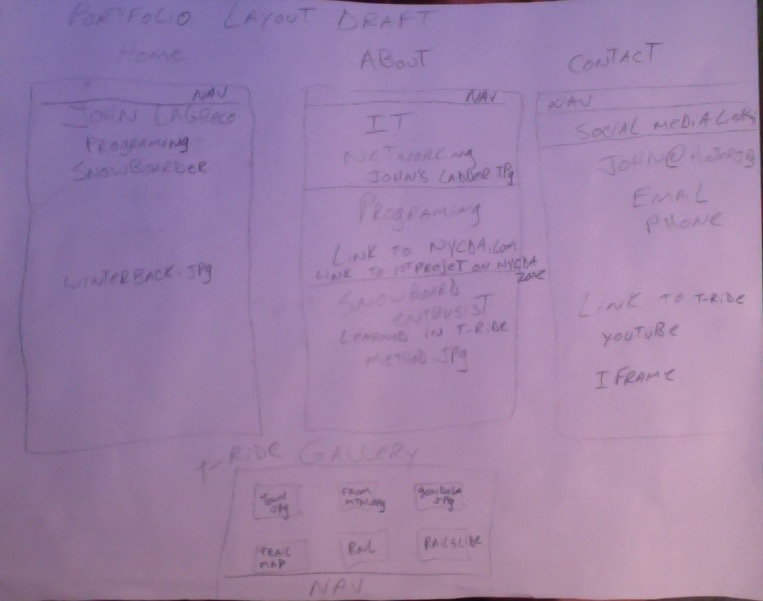 PORTFOLIO LAYOUT DRAFT
Home
NAV
JOHN LAGRECO
PROGRAMING
SNOWBOARDER
WINTERBACK.JPg
ABOUT
NAV
IT
NETWORKING
JOHN'S LADDER.JPg
PROGRAMING
LINK TO NYCDA.COM
LINK TO 1ST PROJET ON NYCDA
ZONE
SNOWBOARD
ENTHUSIST
LEARNED IN T-RIDE
METHOD.JPg
CONTACT
NAV
SOCIAL MEDIA LINKS
JOHN@HUNTERJPg
EMAIL
PHONE
LINK TO T-RIDE
YOUTUBE
IFRAME
T-RIDE GALLERY
TOWN
JPg
FROM
MTN.JPg
GONDOLA
JPg
TRAIL
MAP
RAIL
RAILSLIDE
NAV